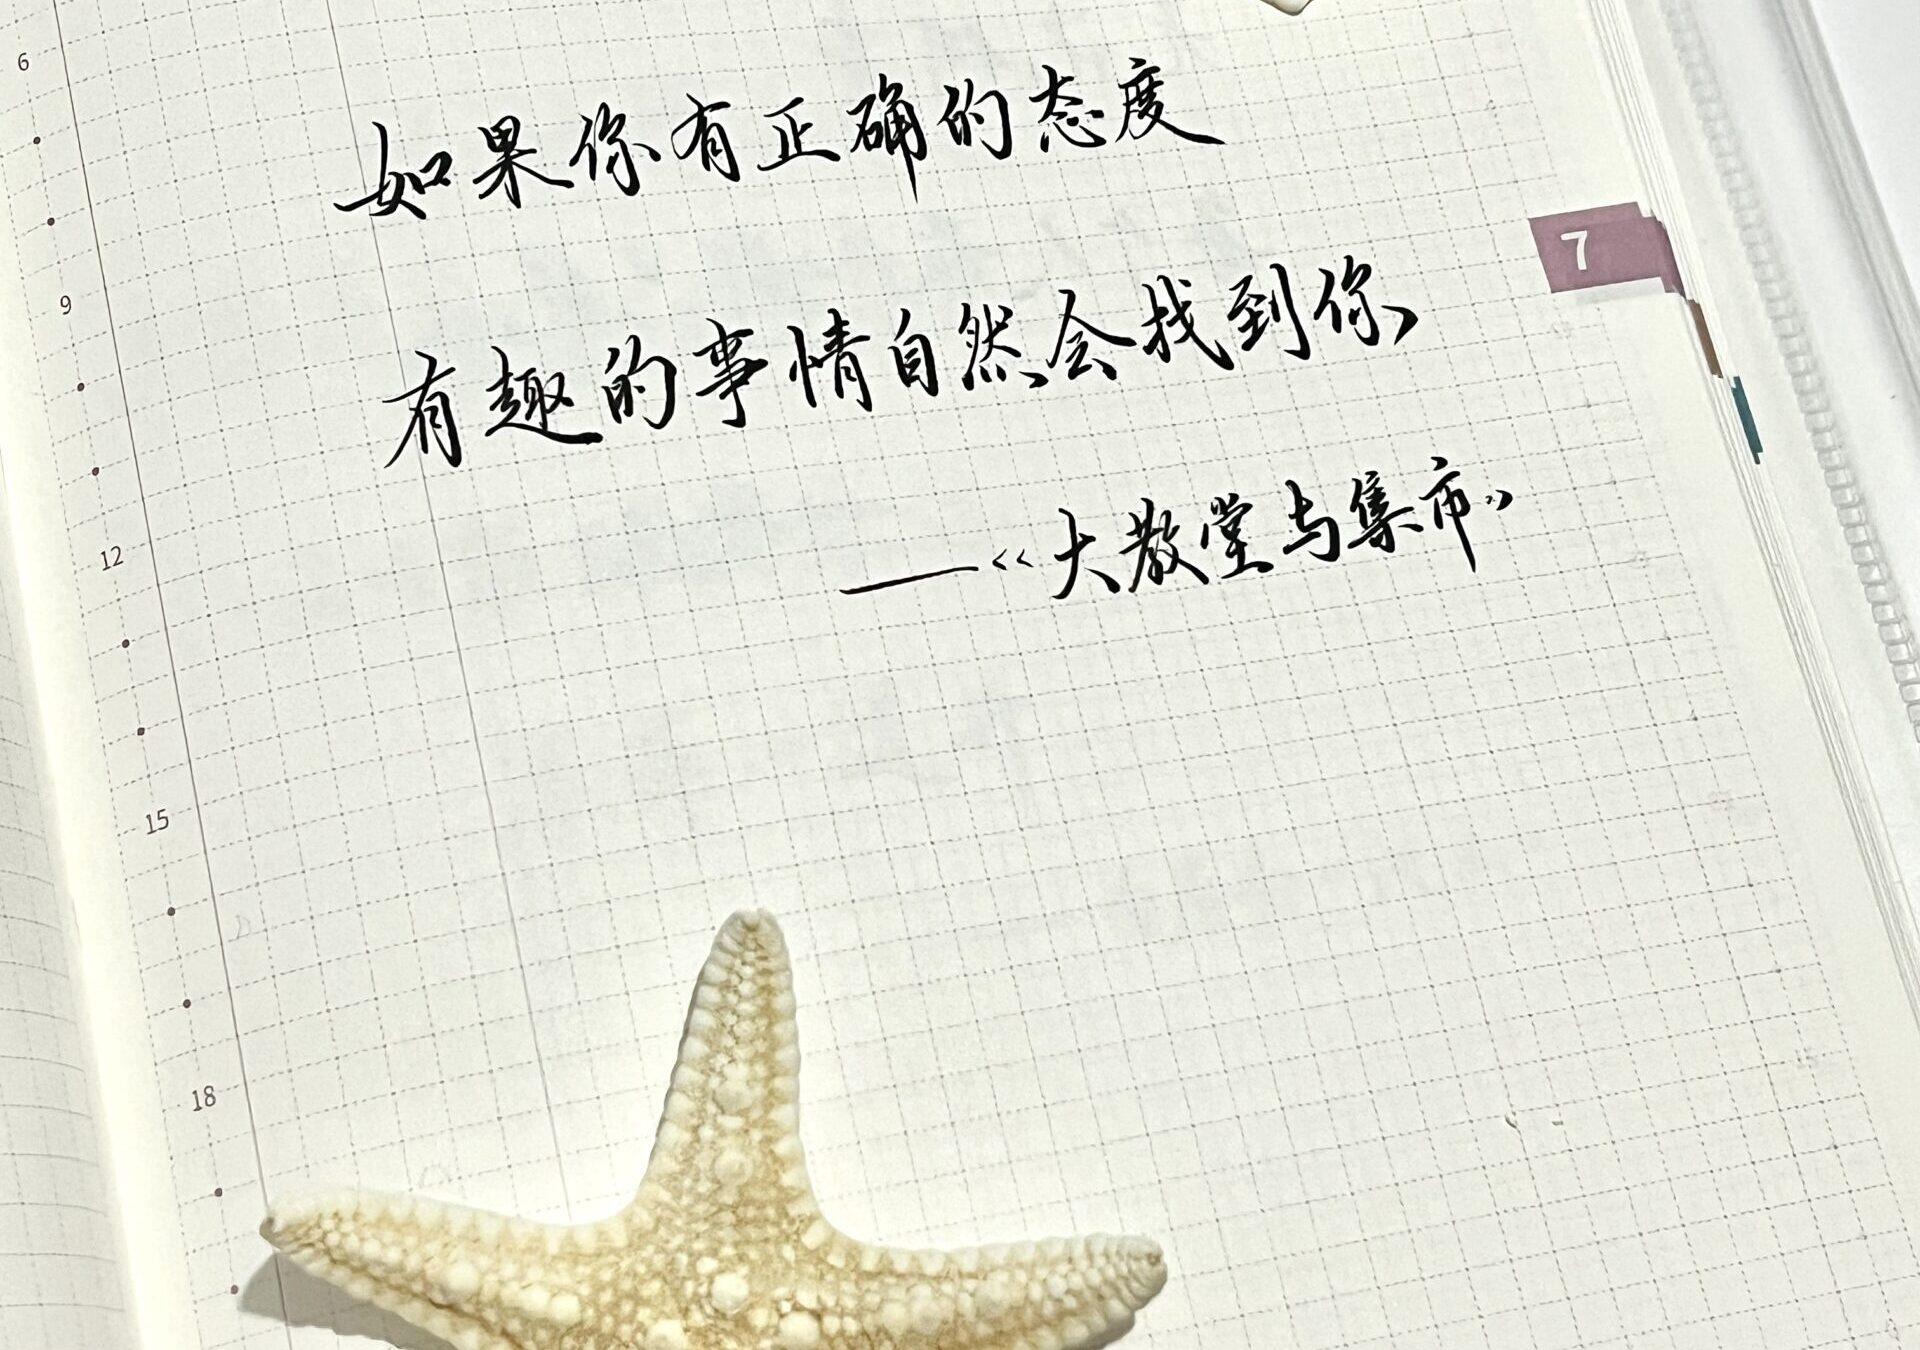 如果你有正确的态度
有趣的事情自然会找到你
——《大教堂与集市》
7
6
9
12
15
18